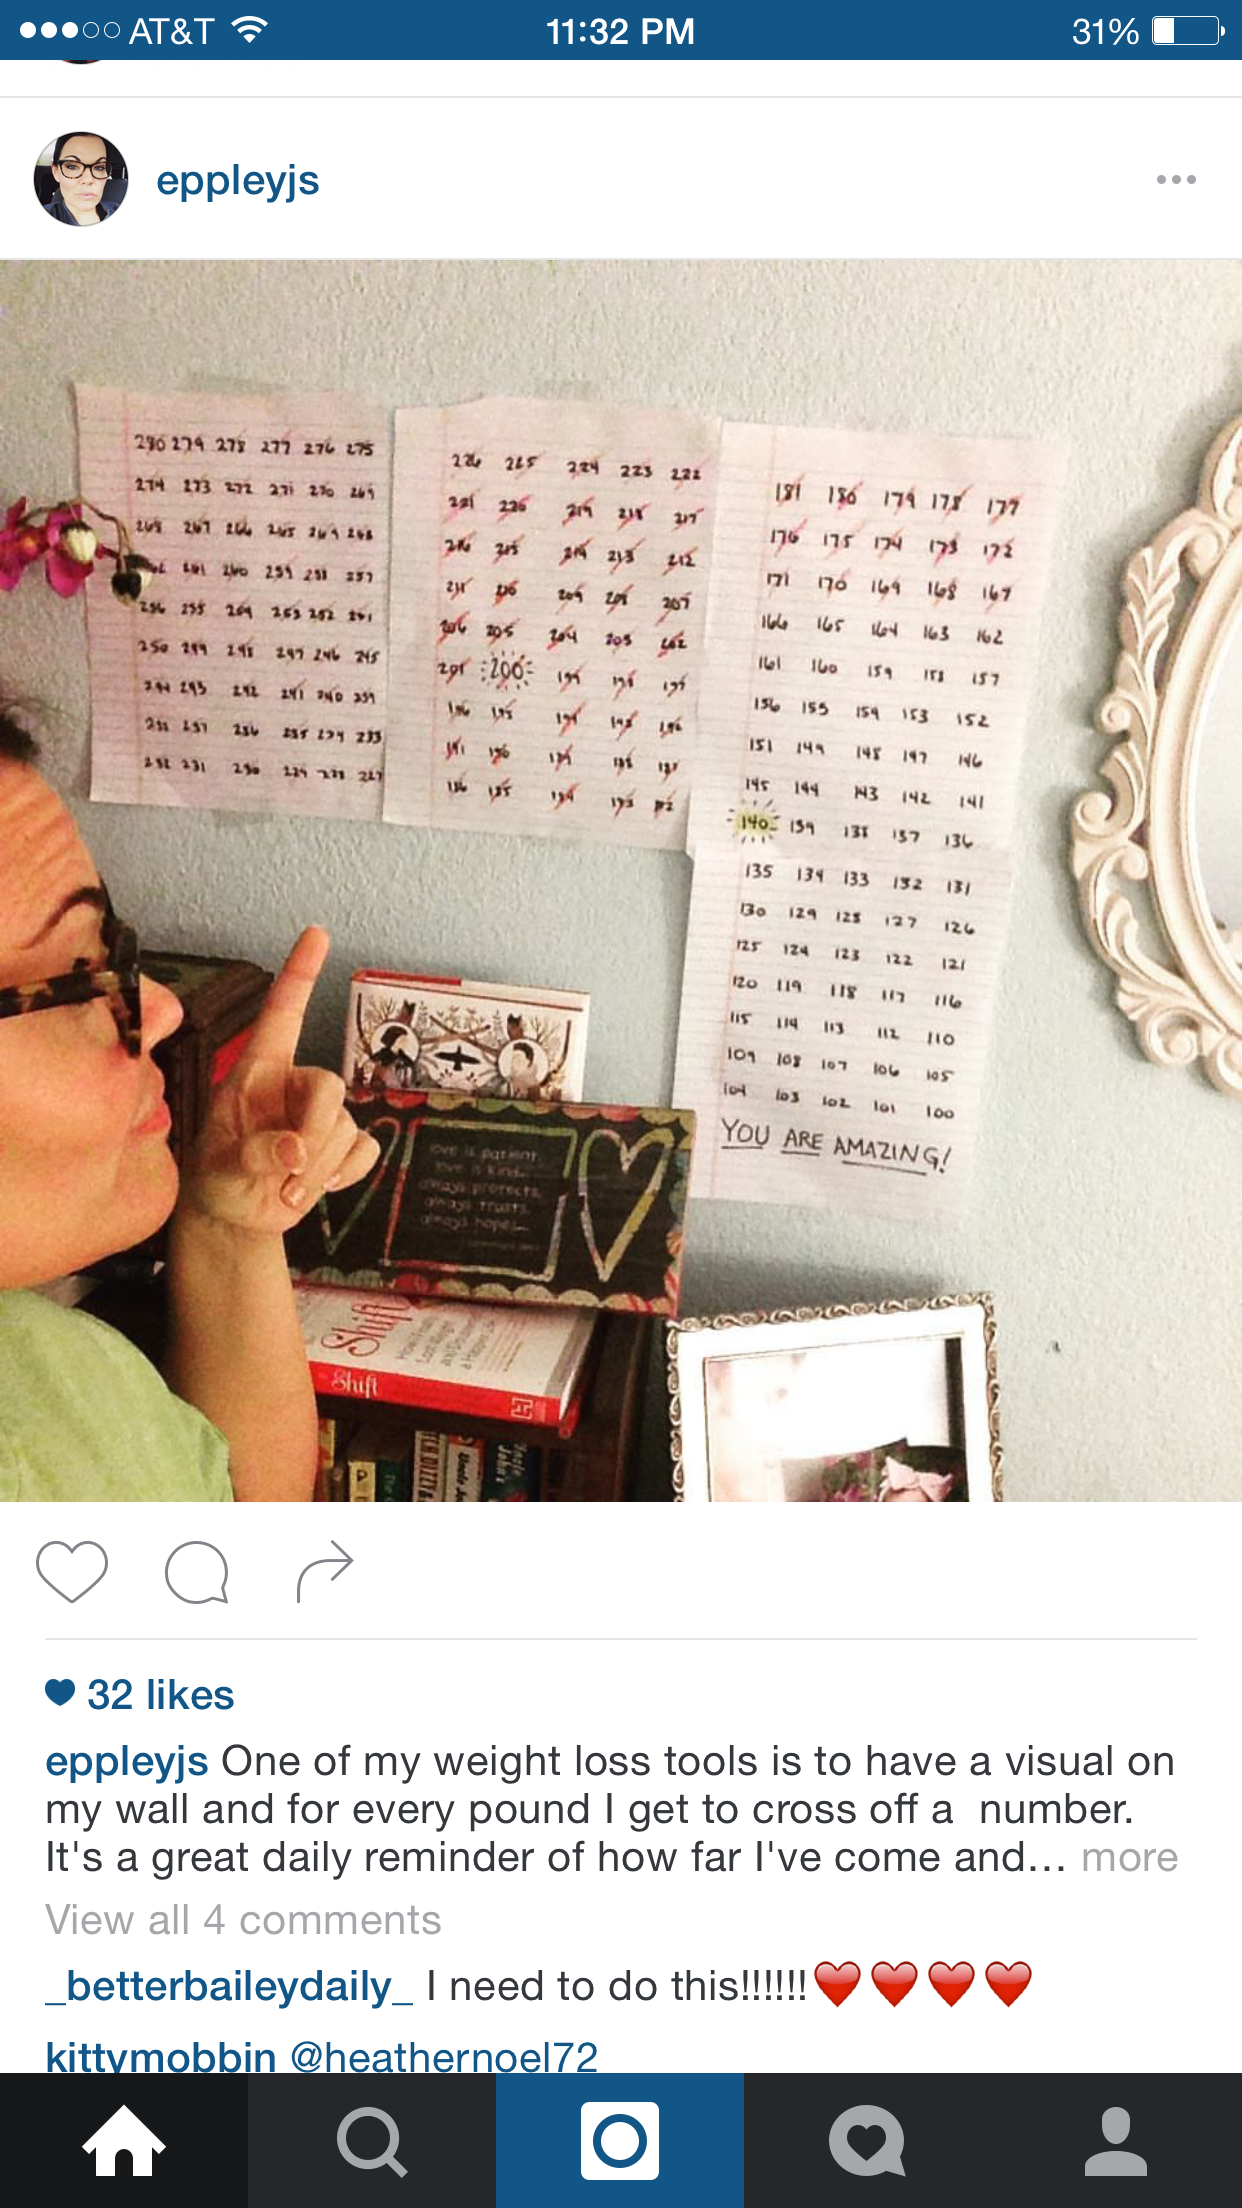 AT&T 11:32 PM 31%
eppleyjs
280 279 278 277 276 275
274 273 272 271 270 269
268 267 266 265 264 263
261 260 259 258 257
256 255 254 253 252 251
250 249 248 247 246 245
244 243 242 241 240 239
238 237 236 235 234 233
232 231 230 229 228 227
226 225 224 223 222
221 220 219 218 217
216 215 214 213 212
211 210 209 208 207
206 205 204 203 202
201 200 199 198 197
196 195 194 193 192
191 190 189 188 187
186 185 184 183 182
181 180 179 178 177
176 175 174 173 172
171 170 169 168 167
166 165 164 163 162
161 160 159 158 157
156 155 154 153 152
151 149 148 147 146
145 144 143 142 141
140 139 138 137 136
135 134 133 132 131
130 129 128 127 126
125 124 123 122 121
120 119 118 117 116
115 114 113 112 110
109 108 107 106 105
104 103 102 101 100
YOU ARE AMAZING!
love is patient,
love is kind...
always protects,
always trusts,
always hopes...
Shift
Shift
32 likes
eppleyjs One of my weight loss tools is to have a visual on
my wall and for every pound I get to cross off a number.
It's a great daily reminder of how far I've come and... more
View all 4 comments
_betterbaileydaily_ I need to do this!!!!!!❤️❤️❤️❤️
kittymobbin @heathernoel72